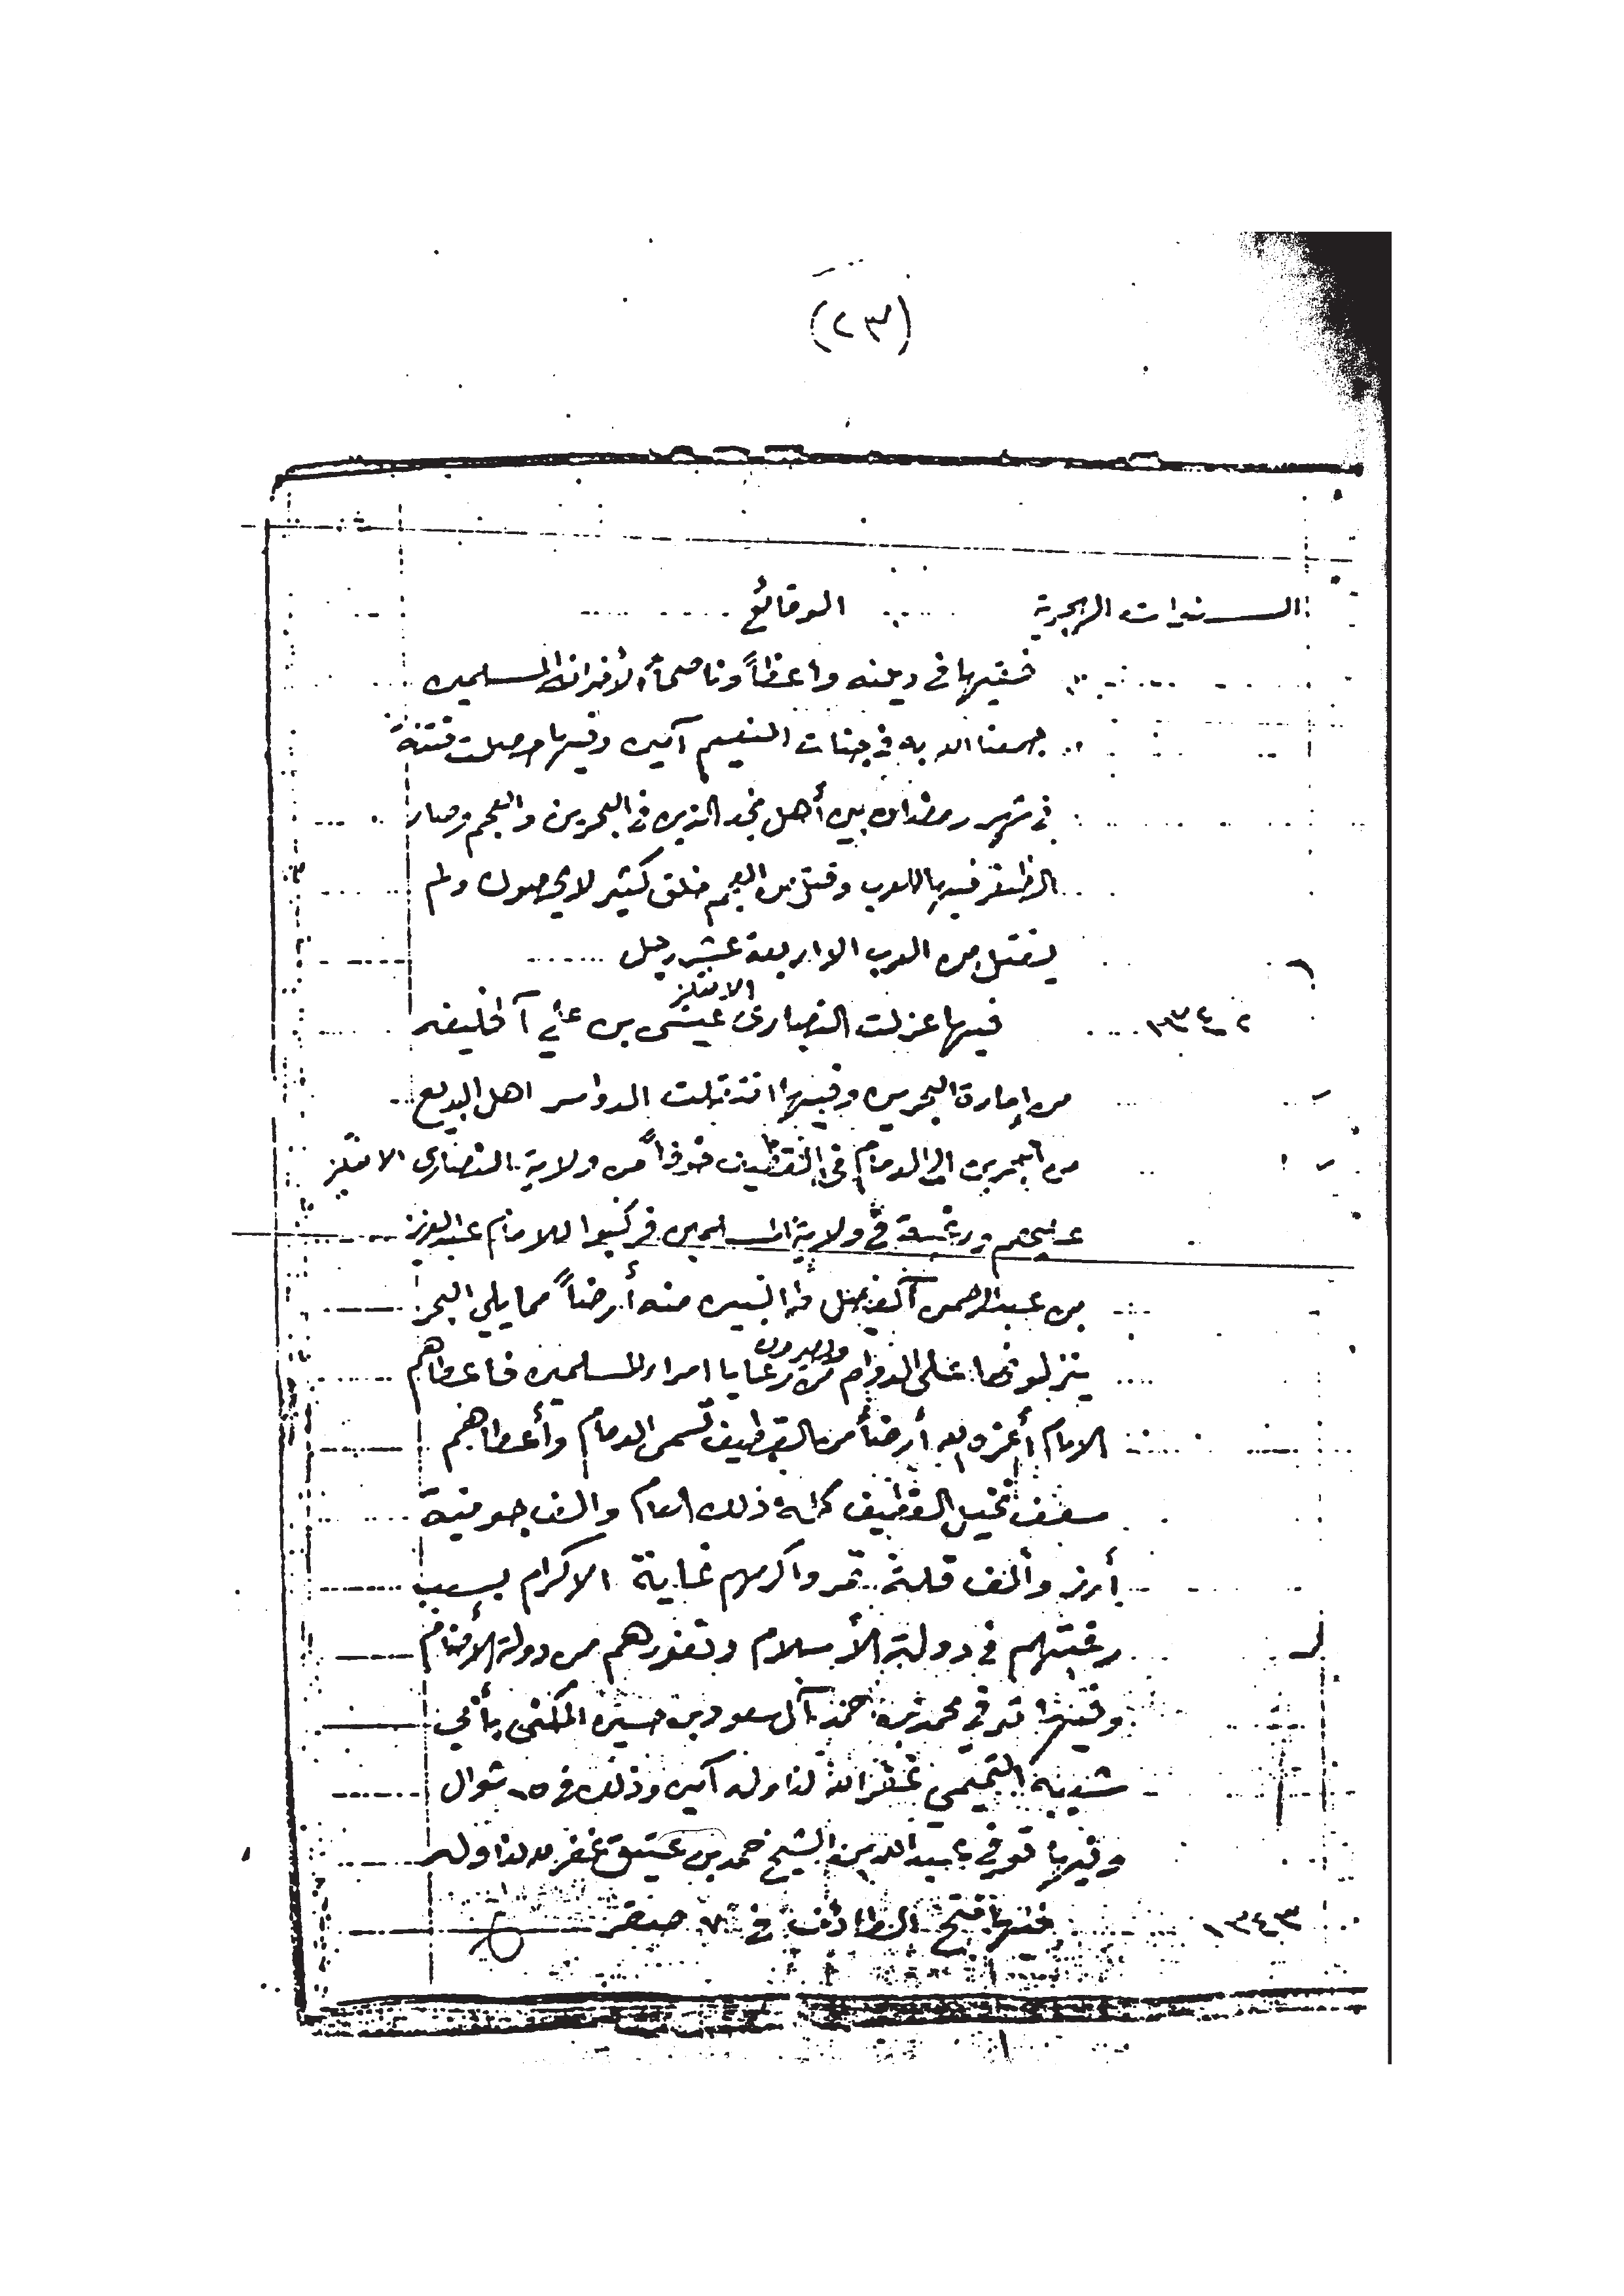 (٢٣)
السنوات الهجرية الوقائع
فقيها في دينه واعظاً وناصحاً لأخوانه المسلمين
جمعنا الله به في جنات النعيم آمين وفيها حصلت فتنة
في شهر رمضان بين أهل نجد الذين في البحرين والعجم وصار
الظفر فيها للعرب وقتل من العجم خلق كثير لا يحصون ولم
يقتل من العرب الا اربعة عشر رجل
١٣٤٢ فيها عزلت النصارى الانقليز عيسى بن علي آل خليفه
من إمارة البحرين وفيها انتقلت الدواسر اهل البديع
من البحرين الى الدمام في القطيف خوفاً من ولاية النصارى الانقليز
عليهم ورغبة في ولاية المسلمين فركبوا للامام عبدالعزيز
بن عبدالرحمن آل فيصل طالبين منه أرضاً مما يلي البحر
ينزلونها على الدوام ويصيرون من رعايا امراء المسلمين فاعطاهم
الامام أعزه الله أرضاً من القطيف تسمى الدمام وأعطاهم
نخيل القطيف ذلك العام والف جونية
أرز وألف قلة تمر واكرمهم غاية الاكرام بسبب
رغبتهم في دولة الأسلام ونفورهم من دولة الأصنام
وفيها توفي محمد بن حمد آل سعود بن حسين المكنى بأبي
التميمي غفر الله لنا وله آمين وذلك في ١٥ شوال
وفيها توفي عبدالله بن الشيخ حمد بن عتيق غفر الله لنا وله
١٣٤٣ فيها فتح الطائف في ٧ صفر